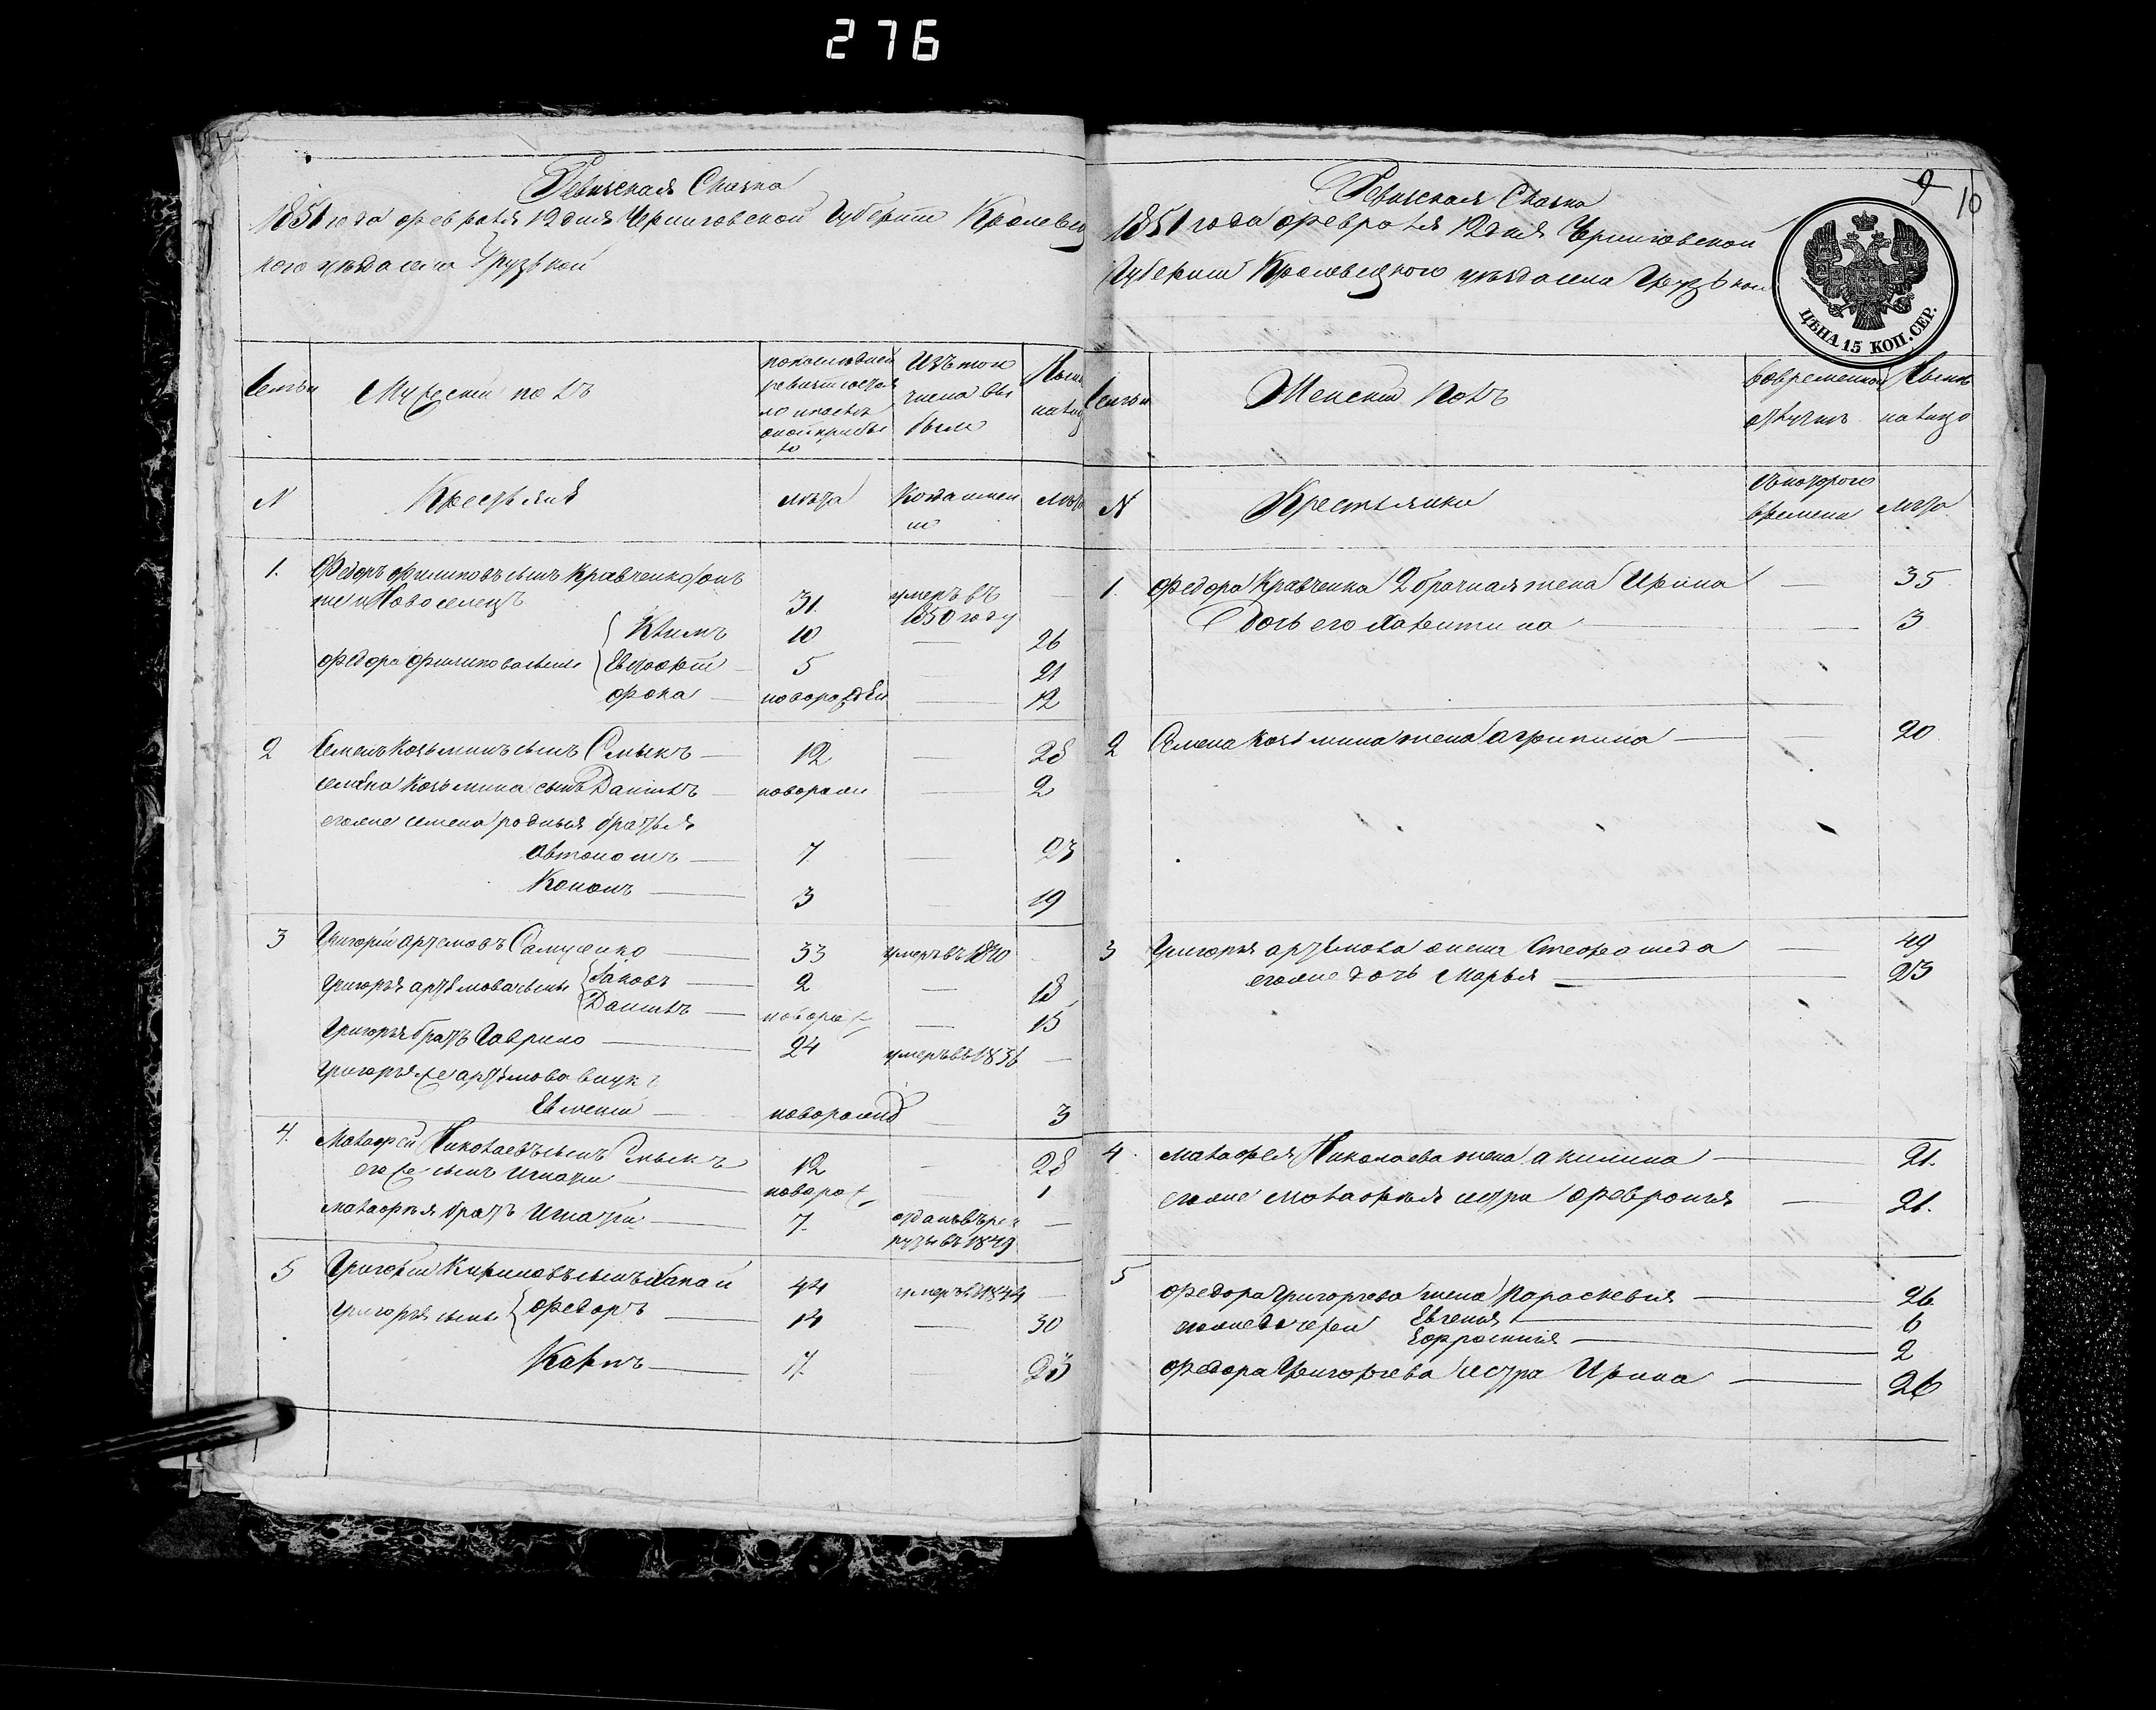 276
Ревизская Сказка
1851 года февраля 12 дня Черниговской Губернии Кролевец
кого уезда села Грузкой
Семьи
Мужеский полъ
по последней
ревизии состоя
ло и после
оной прибы
ло
Изъ того
числа вы
были
Ныне
на лицо
N
Крестьяне
лета
Когда имен
но
лета
1. Федоръ Филиповъ сынъ Кравченко онъ
же и Новоселецъ 31. умеръ въ
1850 году —
Климъ 10 — 26
Федора Филипова сыны Евстафий 5 — 21
Фока — новорожден — 12
2 Семенъ Козьминъ сынъ Смыкъ — 12 — 28
Семена Козьмина сынъ Данилъ — новорожден — 2
его же Семена родныя братья
Автономъ — 7 — 23
Кононъ — 3 — 19
3 Григорій Артемовъ Самусенко — 33 умеръ въ 1840 —
Григорья Артемова сыны Яковъ — 2 — 18
Данилъ — новорож — 15
Григорья братъ Гаврило — 24 умеръ въ 1836 —
Григорья же Артемова внукъ
Евгений — новорожд — 3
4. Малафей Николаевъ сынъ Смыкъ 12 — 28
его же сынъ Игнатий — новорож — 1
Малафея братъ Игнатий — 7. отданъ въ рек
руты въ 1849 —
5 Григорий Кириловъ сынъ 44 умеръ въ 1844 —
Григорья сыны Федоръ — 14 — 30
Карпъ — 7. — 23
9 10
Ревизская Сказка
1851 года февраля 12 дня Черниговской
Губернии Кролевецкого уезда села Грузкой
ЦѢНА 15 КОП. СЕР.
Семьи
Женский полъ
Во временной
отлучке
Ныне
на лицо
N
Крестьянки
съ которого
времени
лета
1. Федора Кравченка 2 брачная жена Ирина — 35
Дочь его Калентина — — 3
2 Семена Козьмина жена Агрипина — — 20
3 Григорья Артемова жена Стефанида — 49
его же дочь Марья — — 23
4. Малафея Николаева жена Акилина — 21.
его же Малафея сестра Февронія — 21.
5 Федора Григорьева жена Параскевия — 26
его же дочери Евгения — 6
Ефросиния — 2
Федора Григорьева сестра Ирина — 26